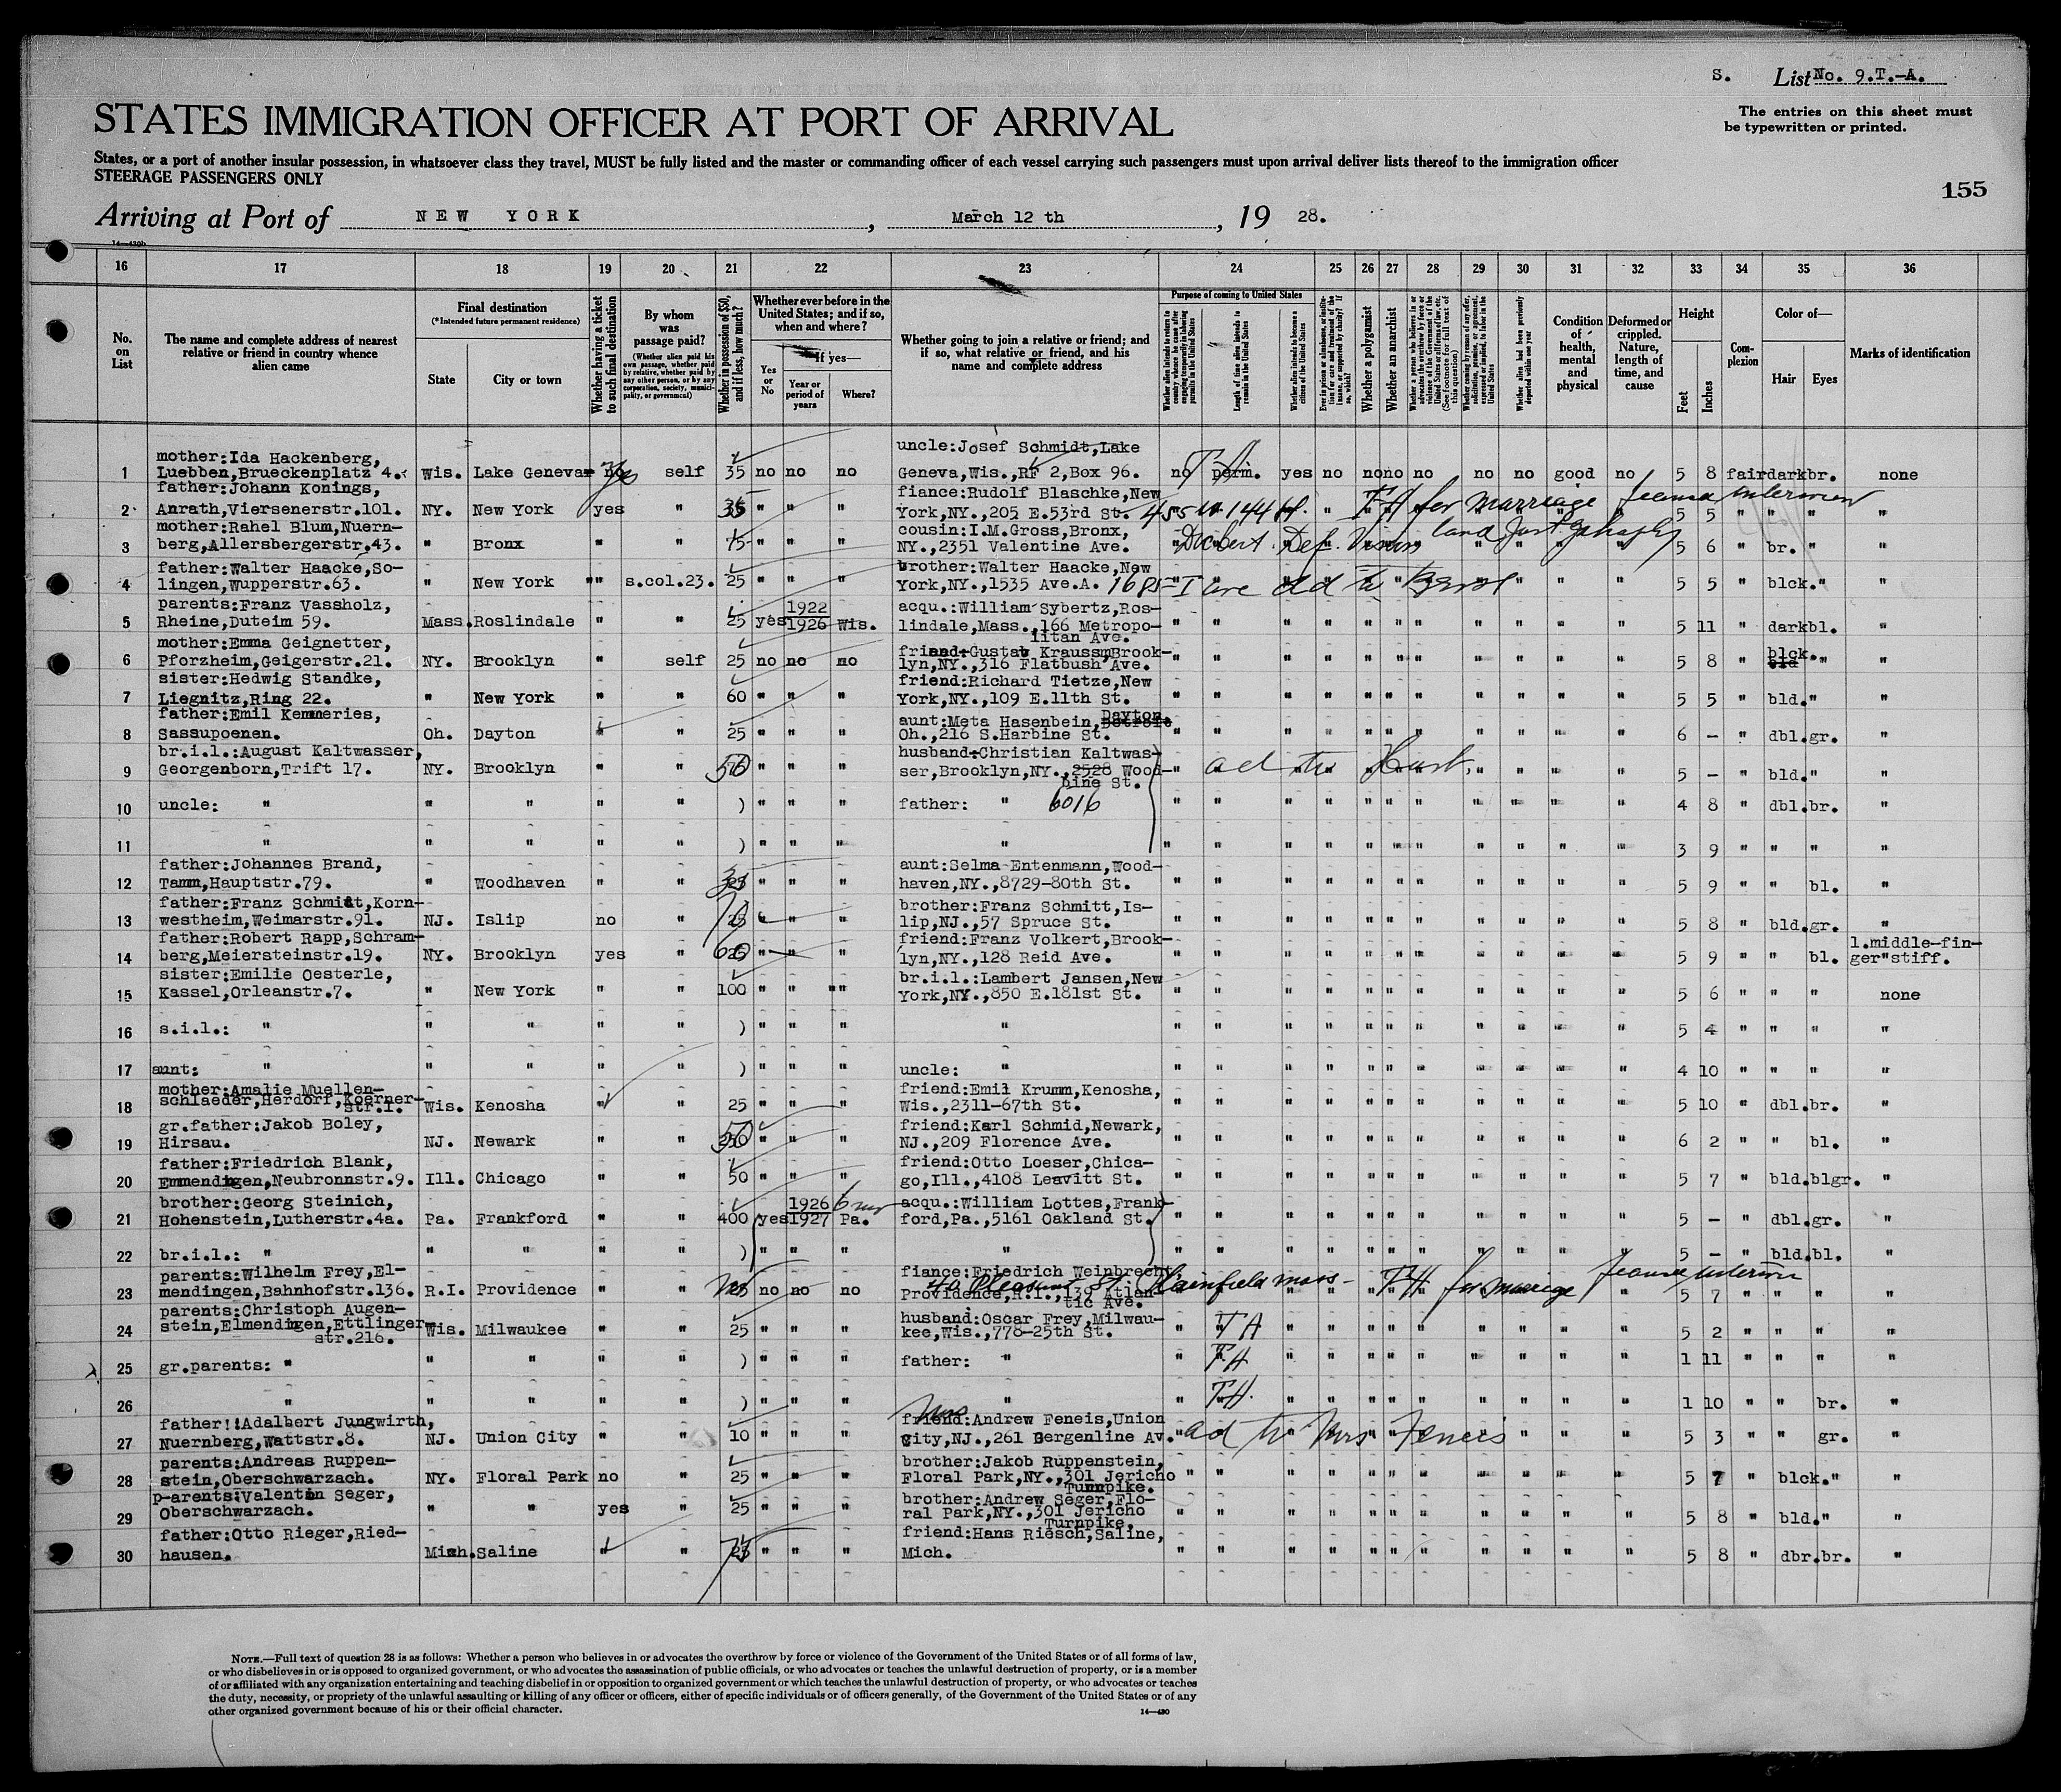 S. List No. 9.T.-A.
STATES IMMIGRATION OFFICER AT PORT OF ARRIVAL
The entries on this sheet must
be typewritten or printed.
States, or a port of another insular possession, in whatsoever class they travel, MUST be fully listed and the master or commanding officer of each vessel carrying such passengers must upon arrival deliver lists thereof to the immigration officer
STEERAGE PASSENGERS ONLY
155
Arriving at Port of NEW YORK, March 12 th, 19 28.
14—430b
16 17 18 19 20 21 22 23 24 25 26 27 28 29 30 31 32 33 34 35 36
No. on List
The name and complete address of nearest relative or friend in country whence alien came
Final destination
(*Intended future permanent residence)
State
City or town
Whether having a ticket to such final destination
By whom was passage paid?
(Whether alien paid his own passage, whether paid by relative, whether paid by any other person, or by any corporation, society, municipality, or government)
Whether in possession of $50, and if less, how much?
Whether ever before in the United States; and if so, when and where?
Yes or No
If yes—
Year or period of years
Where?
Whether going to join a relative or friend; and if so, what relative or friend, and his name and complete address
Purpose of coming to United States
Length of time alien intends to remain in the United States
Whether alien intends to become a citizen of the United States
Whether a polygamist
Whether an anarchist
Condition of health, mental and physical
Deformed or crippled. Nature, length of time, and cause
Height
Feet
Inches
Complexion
Color of—
Hair
Eyes
Marks of identification
mother:Ida Hackenberg, uncle:Josef Schmidt,Lake
1 Luebben,Brueckenplatz 4. Wis. Lake Geneva no yes self 35 no no no Geneva,Wis.,RF 2,Box 96. no perm. yes no no no no no no good no 5 8 fair dark br. none
father:Johann Konings, fiance:Rudolf Blaschke,New
2 Anrath,Viersenerstr.101. NY. New York yes " 35 " " " York,NY.,205 E.53rd St. 455 W 144 St. for marriage 5 5 " " " "
mother:Rahel Blum,Nuern- cousin:I.M.Gross,Bronx,
3 berg,Allersbergerstr.43. " Bronx " " 75 " " " NY.,2351 Valentine Ave. 5 6 " br. " "
father:Walter Haacke,So- brother:Walter Haacke,New
4 lingen,Wupperstr.63. " New York "" s.col.23. 25 " " " York,NY.,1535 Ave.A. 1685 5 5 " blck." "
parents:Franz Vassholz, 1922 acqu.:William Sybertz,Ros-
5 Rheine,Duteim 59. Mass. Roslindale " " 25 yes 1926 Wis. lindale,Mass.,166 Metropo- 5 11 " dark bl. "
litan Ave.
mother:Emma Geignetter, friend:Gustav Krauss,Brook-
6 Pforzheim,Geigerstr.21. NY. Brooklyn " self 25 no no no lyn,NY.,316 Flatbush Ave. 5 8 " blck. " "
sister:Hedwig Standke, friend:Richard Tietze,New
7 Liegnitz,Ring 22. " New York " " 60 " " " York,NY.,109 E.11th St. 5 5 " bld." "
father:Emil Kemmeries, aunt:Meta Hasenbein, Dayton
8 Sassupoenen. Oh. Dayton " " 25 " " " Oh.,216 S.Harbine St. 6 - " dbl.gr. "
br.i.l.:August Kaltwasser, husband:Christian Kaltwas-
9 Georgenborn,Trift 17. NY. Brooklyn " " 50 " " " ser,Brooklyn,NY.,2528 Wood- ad to Husb. 5 - " bld." "
bine St.
10 uncle: " " " " " ) " " " father: " 6016 4 8 " dbl.br. "
11 " " " " " ) " " " " 3 9 " " " "
father:Johannes Brand, aunt:Selma Entenmann,Wood-
12 Tamm,Hauptstr.79. " Woodhaven " " " " " haven,NY.,8729-80th St. 5 9 " " bl. "
father:Franz Schmitt,Korn- brother:Franz Schmitt,Is-
13 westheim,Weimarstr.91. NJ. Islip no " 25 " " lip,NJ.,57 Spruce St. 5 8 " bld.gr. "
father:Robert Rapp,Schram- friend:Franz Volkert,Brook- l.middle-fin-
14 berg,Meiersteinstr.19. NY. Brooklyn yes " 60 " " " lyn,NY.,128 Reid Ave. 5 9 " " bl. ger"stiff.
sister:Emilie Oesterle, br.i.l.:Lambert Jansen,New
15 Kassel,Orleanstr.7. " New York " " 100 " " "" York,NY.,850 E.181st St. 5 6 " " " none
16 s.i.l.: " " " " " ) " " " " 5 4 " " " "
17 aunt: " " " " ) " " " uncle: " 4 10 " " " "
mother:Amalie Muellen- friend:Emil Krumm,Kenosha,
18 schlaeder,Herdorf,Koerner- Wis. Kenosha " " 25 " " " Wis.,2311-67th St. 5 10 " dbl.br. "
str.1.
gr.father:Jakob Boley, friend:Karl Schmid,Newark,
19 Hirsau. NJ. Newark " " 50 " " " NJ.,209 Florence Ave. 6 2 " " bl. "
father:Friedrich Blank, friend:Otto Loeser,Chica-
20 Emmendingen,Neubronnstr.9. Ill. Chicago " " 50 " " " go,Ill.,4108 Leavitt St. 5 7 " bld.blgr. "
brother:Georg Steinich, 1926 acqu.:William Lottes,Frank-
21 Hohenstein,Lutherstr.4a. Pa. Frankford " " 400 yes 1927 Pa. ford,Pa.,5161 Oakland St. 5 - " dbl.gr. "
22 br.i.l.: " " " " " ) " " " " 5 - " bld.bl. "
parents:Wilhelm Frey,El- fiance:Friedrich Weinbrecht
23 mendingen,Bahnhofstr.136. R.I. Providence " " no no no Providence,R.I.,139 Atlan- Plainfield mass - for marriage 5 7 " " " "
tic Ave.
parents:Christoph Augen- husband:Oscar Frey,Milwau-
24 stein,Elmendingen,Ettlinger- Wis. Milwaukee " " 25 " " " kee,Wis.,778-25th St. 5 2 " " " "
str.216.
25 gr.parents: " " " " " ) " " " father: " 1 11 " " " "
26 " " " " " ) " " " " 1 10 " " br. "
father!:Adalbert Jungwirth, Mrs friend:Andrew Feneis,Union
27 Nuernberg,Wattstr.8. NJ. Union City " " 10 " " " City,NJ.,261 Bergenline Av. ad to Mrs Feneis 5 3 " " gr. "
parents:Andreas Ruppen- brother:Jakob Ruppenstein,
28 stein,Oberschwarzach. NY. Floral Park no " 25 " " " Floral Park,NY.,301 Jericho 5 7 " blck." "
Turnpike.
p-arents:Valentin Seger, brother:Andrew Seger,Flo-
29 Oberschwarzach. " " yes " 25 " " " ral Park,NY.,301 Jericho 5 8 " bld." "
Turnpike.
father:Otto Rieger,Ried- friend:Hans Riesch,Saline,
30 hausen. Mich. Saline " " 75 " " " Mich. 5 8 " dbr.br. "
NOTE.—Full text of question 28 is as follows: Whether a person who believes in or advocates the overthrow by force or violence of the Government of the United States or of all forms of law,
or who disbelieves in or is opposed to organized government, or who advocates the assassination of public officials, or who advocates or teaches the unlawful destruction of property, or is a member
of or affiliated with any organization entertaining and teaching disbelief in or opposition to organized government or which teaches the unlawful destruction of property, or who advocates or teaches
the duty, necessity, or propriety of the unlawful assaulting or killing of any officer or officers, either of specific individuals or of officers generally, of the Government of the United States or of any
other organized government because of his or their official character.
14—430